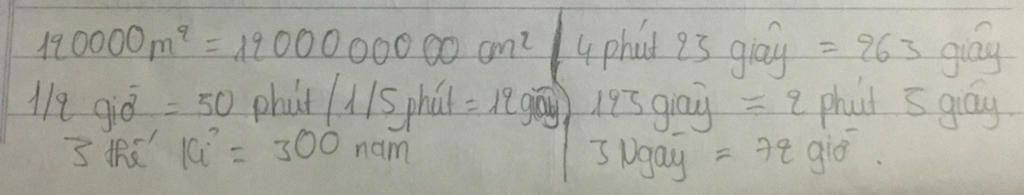 120000m² = 1200000000 cm² | 4 phút 23 giây = 263 giây
1/2 giờ = 30 phút / 1/5 phút = 12 giây | 123 giây = 2 phút 3 giây.
3 thế kỉ = 300 năm | 3 Ngày = 72 giờ.